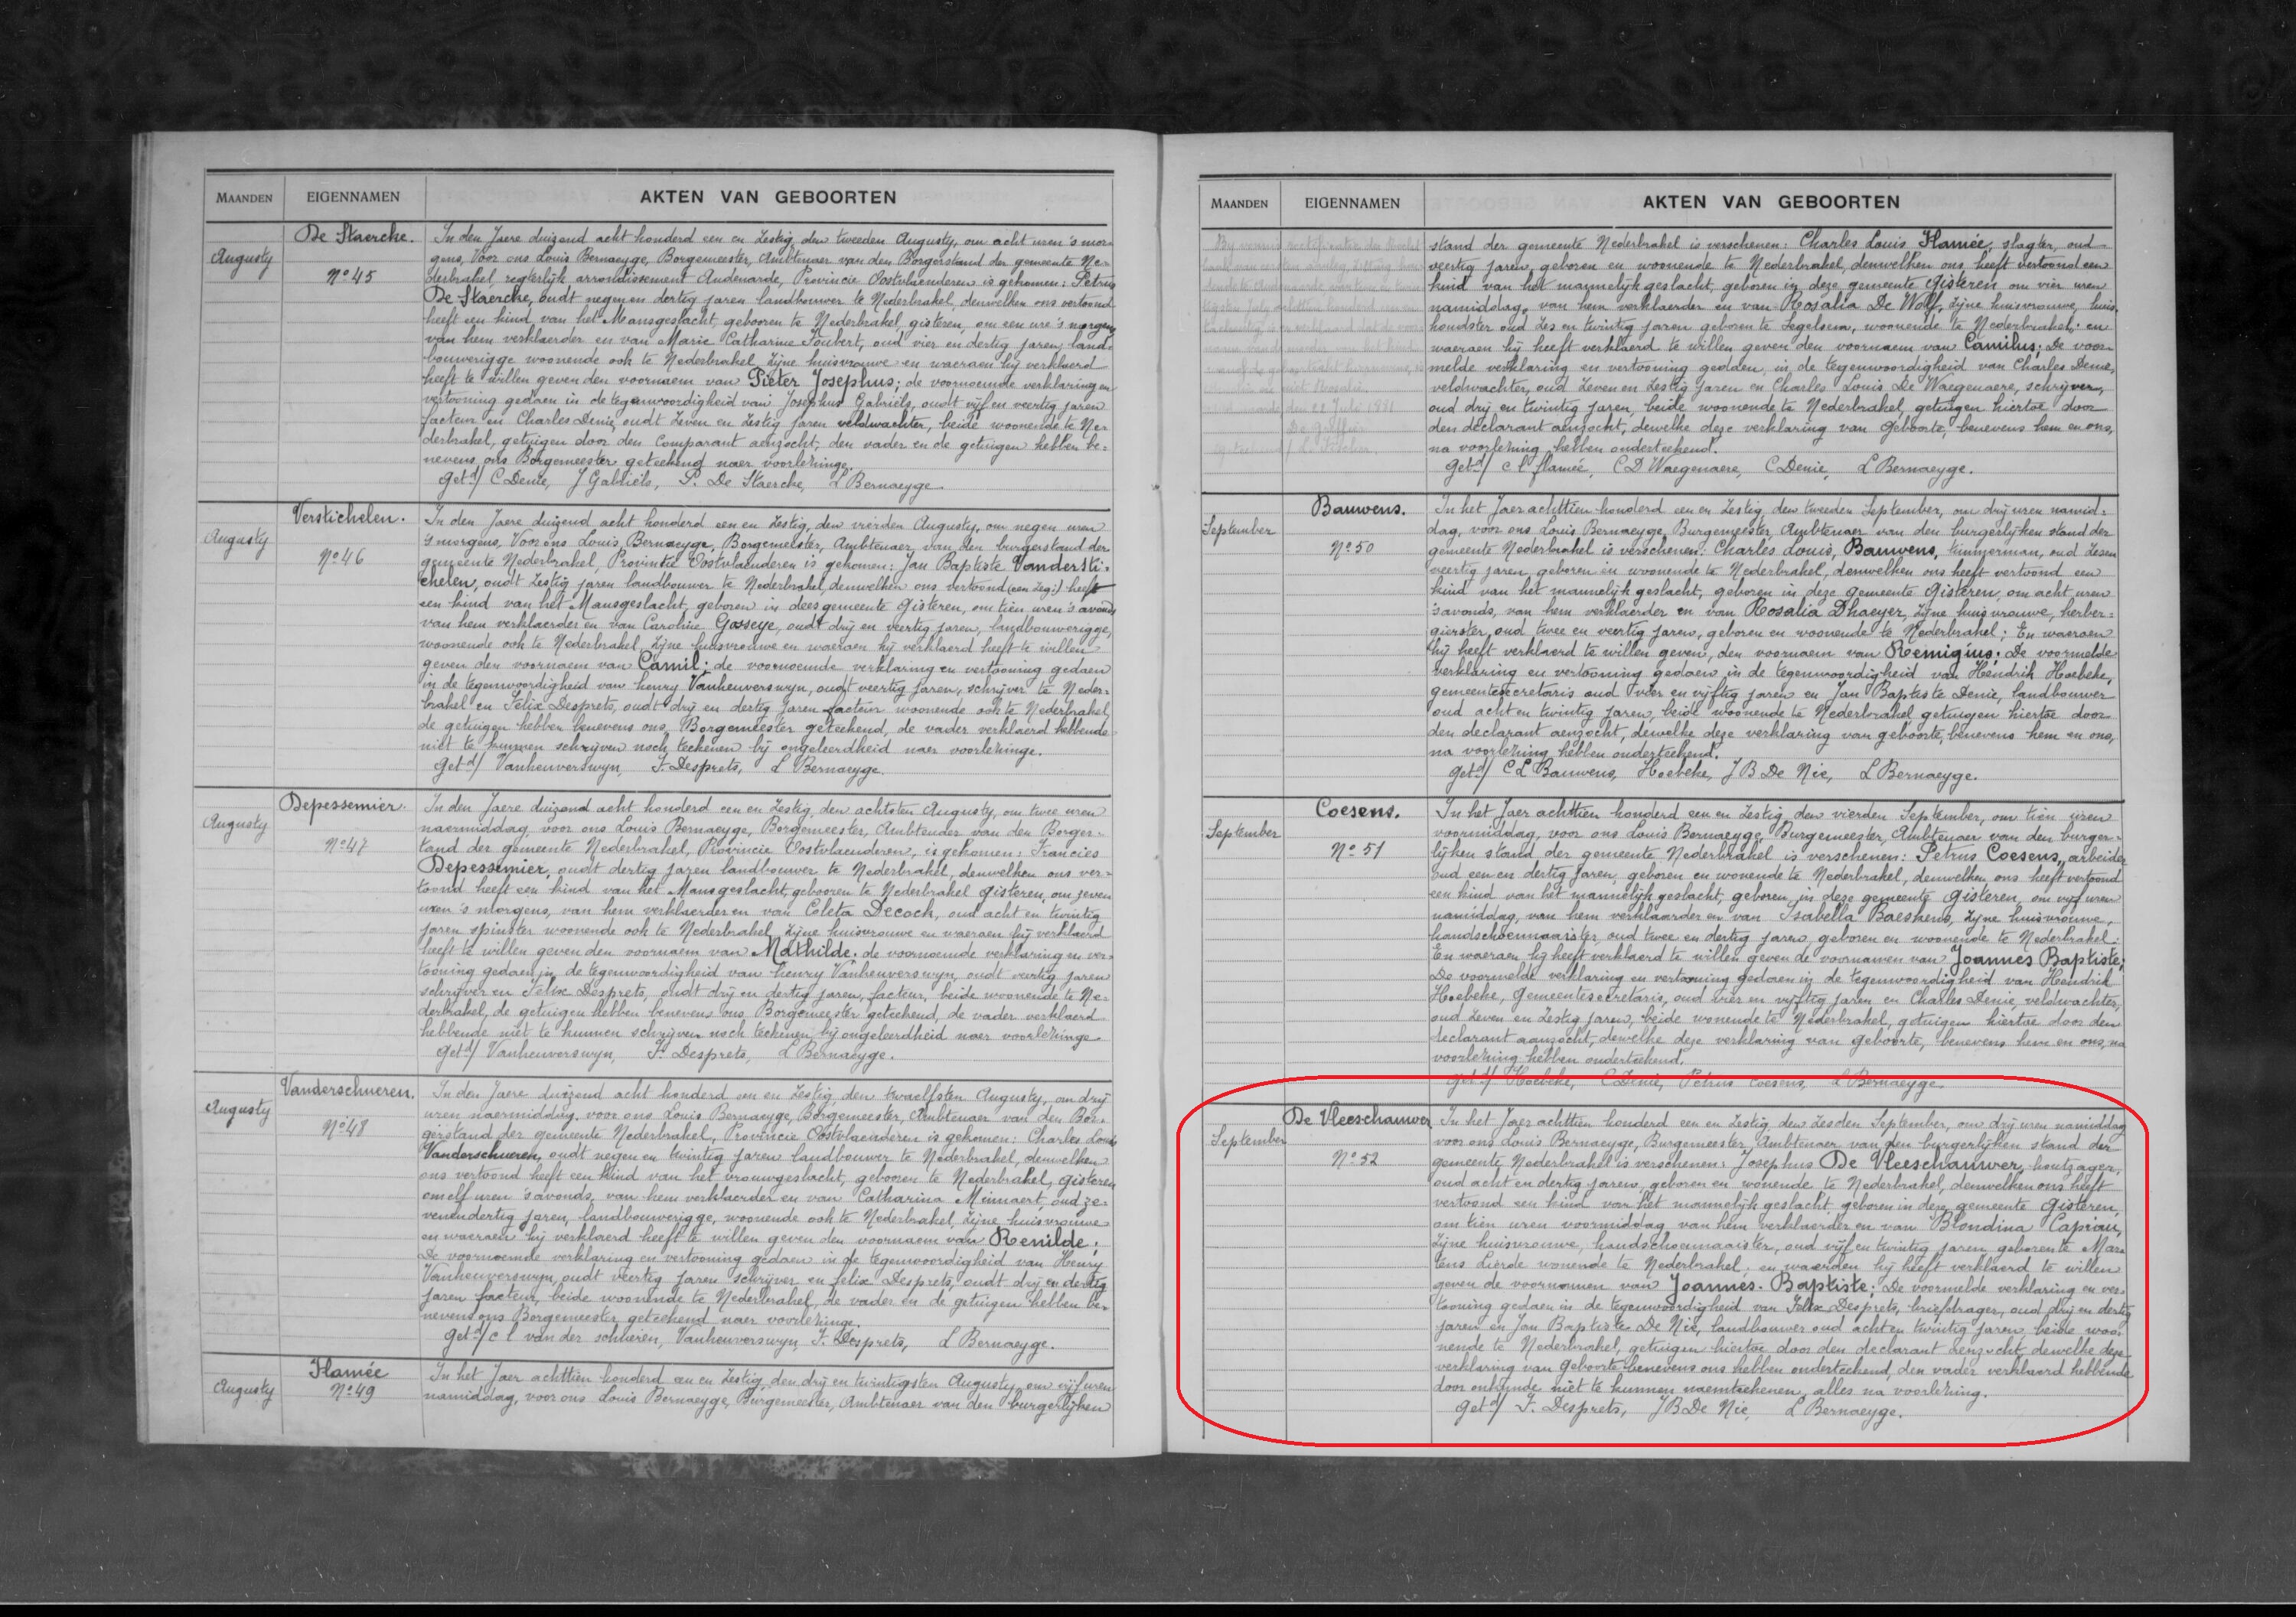 MAANDEN EIGENNAMEN AKTEN VAN GEBOORTEN
Augusty
De Staercke.
Nº 45
In den Jaere duizend acht honderd een en zestig, den tweeden Augusty, om acht uren 's mor-
gens, Voor ons Louis Bernaeyge, Borgemeester, Ambtenaer van den Borgerstand der gemeente Ne-
derbrakel, regterlijk arrondissement Audenarde, Provincie Oostvlaenderen is gekomen: Petrus
De Staercke, oudt negen en dertig jaren landbouwer te Nederbrakel, denwelken ons vertoond
heeft een kind van het Mansgeslacht, gebooren te Nederbrakel, gisteren, om een ure 's morgens
van hem verklaerder en van Marie Catharine Soubert, oud vier en dertig jaren, land-
bouwerigge woonende ook te Nederbrakel, zijne huisvrouwe en waeraen hij verklaerd
heeft te willen geven den voornaem van Pieter Josephus; de voornoemde verklaring en
vertooning gedaen in de tegenwoordigheid van Josephus Gabriëls, oudt vijf en veertig jaren
facteur en Charles Denie, oudt zeven en zestig jaren veldwachter, beide woonende te Ne-
derbrakel, getuigen door den Comparant aenzocht, den vader en de getuigen hebben be-
nevens ons Borgemeester geteekend naer voorlezinge.
Getd/ C Denie, J Gabriëls, P. De Staercke, L Bernaeyge
Augusty
Verstichelen.
Nº 46
In den Jaere duizend acht honderd een en zestig, den vierden Augusty, om negen uren
's morgens, Voor ons Louis Bernaeyge, Borgemeester, Ambtenaer, van den burgerstand der
gemeente Nederbrakel, Provintie Oostvlaenderen is gekomen: Jan Baptiste Vandersti-
chelen, oudt zestig jaren landbouwer te Nederbrakel, denwelken ons vertoond (een zeg:) heeft
een kind van het Mansgeslacht, geboren in dees gemeente gisteren, om tien uren 's avonds
van hem verklaerder en van Caroline Gosseye, oudt drij en veertig jaren, landbouwerigge,
woonende ook te Nederbrakel, zijne huisvrouwe en waeraen hij verklaerd heeft te willen
geven den voornaem van Camil; de voornoemde verklaring en vertooning gedaen
in de tegenwoordigheid van henry Vanheuverswyn, oudt veertig jaren, schrijver te Neder-
brakel en Felix Desprets, oudt drij en dertig jaren facteur woonende ook te Nederbrakel,
de getuigen hebben benevens ons, Borgemeester geteekend, de vader verklaerd hebbende
niet te kunnen schrijven noch teekenen bij ongeleerdheid naer voorlezinge.
Getd/ Vanheuverswyn, F. Desprets, L Bernaeyge.
Augusty
Depessemier.
Nº 47
In den Jaere duizend acht honderd een en zestig, den achtsten Augusty, om twee uren
naermiddag, voor ons Louis Bernaeyge, Borgemeester, Ambtender van den Borger-
tand der gemeente Nederbrakel, Provincie Oostvlaenderen, is gekomen: Francies
Depessemier, oudt dertig jaren landbouwer te Nederbrakel, denwelken ons ver-
toond heeft een kind van het Mansgeslacht, gebooren te Nederbrakel gisteren, om zeven
uren 's morgens, van hem verklaerder en van Coleta Decoch, oud acht en twintig
jaren spinster woonende ook te Nederbrakel, zijne huisvrouwe en waeraen hij verklaerd
heeft te willen geven den voornaem van Mathilde; de voornoemde verklaring en ver-
tooning gedaen in de tegenwoordigheid van henry Vanheuverswyn, oudt veertig jaren
schrijver en Felix Desprets, oudt drij en dertig jaren, facteur, beide woonende te Ne-
derbrakel, de getuigen hebben benevens ons Borgemeester geteekend, de vader verklaerd
hebbende niet te kunnen schrijven noch teekenen bij ongeleerdheid naer voorlezinge
Getd/ Vanheuverswyn, F. Desprets, L Bernaeyge.
Augusty
Vanderschueren.
Nº 48
In den Jaere duizend acht honderd een en zestig, den twaelfsten Augusty, om drij
uren naermiddag, voor ons Louis Bernaeyge, Borgemeester, Ambtenaer van den Bor-
gerstand der gemeente Nederbrakel, Provincie Oostvlaenderen is gekomen: Charles Louis
Vanderschueren, oudt negen en twintig jaren landbouwer te Nederbrakel, denwelken
ons vertoond heeft een kind van het vrouwgeslacht, gebooren te Nederbrakel, gisteren
om elf uren 's avonds, van hem verklaerder en van Catharina Minnaert, oud ze-
venendertig jaren, landbouwerigge, woonende ook te Nederbrakel, zijne huisvrouwe
en waeraen hij verklaerd heeft te willen geven den voornaem van Renilde;
De voornoemde verklaring en vertooning gedaen in de tegenwoordigheid van Henry
Vanheuverswyn, oudt veertig jaren schrijver en felix Desprets, oudt drij en dertig
jaren facteur, beide woonende te Nederbrakel, de vader en de getuigen hebben be-
nevens ons Borgemeester geteekend naer voorlezinge.
Getd/ c l van der schueren, Vanheuverswyn F. Desprets, L Bernaeyge.
Augusty
Flamée
Nº 49
In het Jaer achttien honderd een en zestig, den drij en twintigsten Augusty, om vijf uren
namiddag, voor ons Louis Bernaeyge, Burgemeester, Ambtenaer van den burgerlijken
MAANDEN EIGENNAMEN AKTEN VAN GEBOORTEN
stand der gemeente Nederbrakel is verschenen: Charles Louis Flamée, slagter, oud
veertig jaren, geboren en woonende te Nederbrakel, denwelken ons heeft vertoond een
kind van het mannelijk geslacht, geboren in deze gemeente Gisteren om vier uren
namiddag, van hem verklaerder en van Rosalia De Wolf, zijne huisvrouwe, huis-
houdster oud zes en twintig jaren geboren te Segelsem, woonende te Nederbrakel; en
waeraen hij heeft verklaerd te willen geven den voornaem van Camilus; De voor-
melde verklaring en vertooning gedaen, in de tegenwoordigheid van Charles Denie,
veldwachter, oud zeven en zestig jaren en Charles Louis De Waegenaere, schrijver,
oud drij en twintig jaren, beide woonende te Nederbrakel, getuigen hiertoe door
den declarant aenzocht, dewelke deze verklaring van Geboorte, benevens hem en ons,
na voorlezing hebben onderteekend.
Getd/ c l flamée, C D Waegenaere, C Denie, L Bernaeyge.
September
Bauwens.
Nº 50
In het Jaer achttien honderd een en zestig, den tweeden September, om drij uren namid-
dag, voor ons Louis Bernaeyge, Burgemeester, Ambtenaer van den burgerlyken stand der
gemeente Nederbrakel is verschenen: Charles Louis, Bauwens, timmerman, oud zesen
veertig jaren, geboren en woonende te Nederbrakel, denwelken ons heeft vertoond een
kind van het mannelyk geslacht, geboren in deze gemeente Gisteren, om acht uren
's avonds, van hem verklaerder en van Rosalia Dhaeyer, zijne huisvrouwe, herber-
gierster, oud twee en veertig jaren, geboren en woonende te Nederbrakel; En waeraen
hij heeft verklaerd te willen geven, den voornaem van Remigius; De voormelde
verklaring en vertooning gedaen in de tegenwoordigheid van Hendrik Hoebeke,
gemeentesecretaris oud vier en vijftig jaren en Jan Baptiste Denie, landbouwer
oud acht en twintig jaren, beide woonende te Nederbrakel getuigen hiertoe door
den declarant aenzocht, dewelke deze verklaring van geboorte, benevens hem en ons,
na voorlezing hebben onderteekend.
Getd/ C L Bauwens, Hoebeke, J B De Nie, L Bernaeyge.
September
Coesens.
Nº 51
In het Jaer achttien honderd een en zestig den vierden September, om tien uren
voormiddag, voor ons Louis Bernaeyge Burgemeester, Ambtenaer van den burger-
lijken stand, der gemeente Nederbrakel is verschenen: Petrus Coesens, arbeider
oud een en dertig jaren, geboren en wonende te Nederbrakel, denwelken ons heeft vertoond
een kind van het mannelijk geslacht, geboren, in deze gemeente Gisteren, om vijf uren
namiddag, van hem verklaarder en van Isabella Baeskens, zijne huisvrouwe,
handschoenmaaister, oud twee en dertig jaren geboren en woonende te Nederbrakel;
En waeraen hij heeft verklaerd te willen geven de voornamen van Joannes Baptiste;
De voormelde verklaring en vertooning gedaen in de tegenwoordigheid van Hendrik
Hoebeke, Gemeentesecretaris, oud vier en vijftig jaren en Charles Denie, veldwachter,
oud zeven en zestig jaren, beide wonende te Nederbrakel, getuigen hiertoe door den
declarant aanzocht, dewelke deze verklaring van Geboorte, benevens hem en ons, na
voorlezing hebben onderteekend.
Getd/ Hoebeke, C Denie, Petrus Coesens, L Bernaeyge
September
De Vleeschauwer
Nº 52
In het Jaer achttien honderd een en zestig, den zesden September, om drij uren namiddag
voor ons Louis Bernaeyge, Burgemeester, Ambtenaer van den burgerlijken stand der
gemeente Nederbrakel is verschenen: Josephus De Vleeschauwer, houtzager,
oud acht en dertig jaren, geboren en wonende te Nederbrakel, denwelken ons heeft
vertoond een kind van het mannelijk geslacht, geboren in deze gemeente Gisteren,
om tien uren voormiddag van hem verklaerder en van Blondina Capiau,
zijne huisvrouwe, handschoenmaaister, oud vijf en twintig jaren, geboren te Mar-
Eens Lierde wonende te Nederbrakel; en waeraen hij heeft verklaerd te willen
geven de voornamen van Joannes-Baptiste; De voormelde verklaring en ver-
tooning gedaen in de tegenwoordigheid van Felix Desprets, briefdrager, oud drij en dertig
jaren en Jan Baptiste De Nie, landbouwer oud acht en twintig jaren, beide woo-
nende te Nederbrakel, getuigen hiertoe door den declarant aenzocht, dewelke deze
verklaring van Geboorte benevens ons hebben onderteekend, den vader verklaerd hebbende
door onkunde niet te kunnen naemteekenen, alles na voorlezing.
Getd/ F. Desprets, J B De Nie, L Bernaeyge.